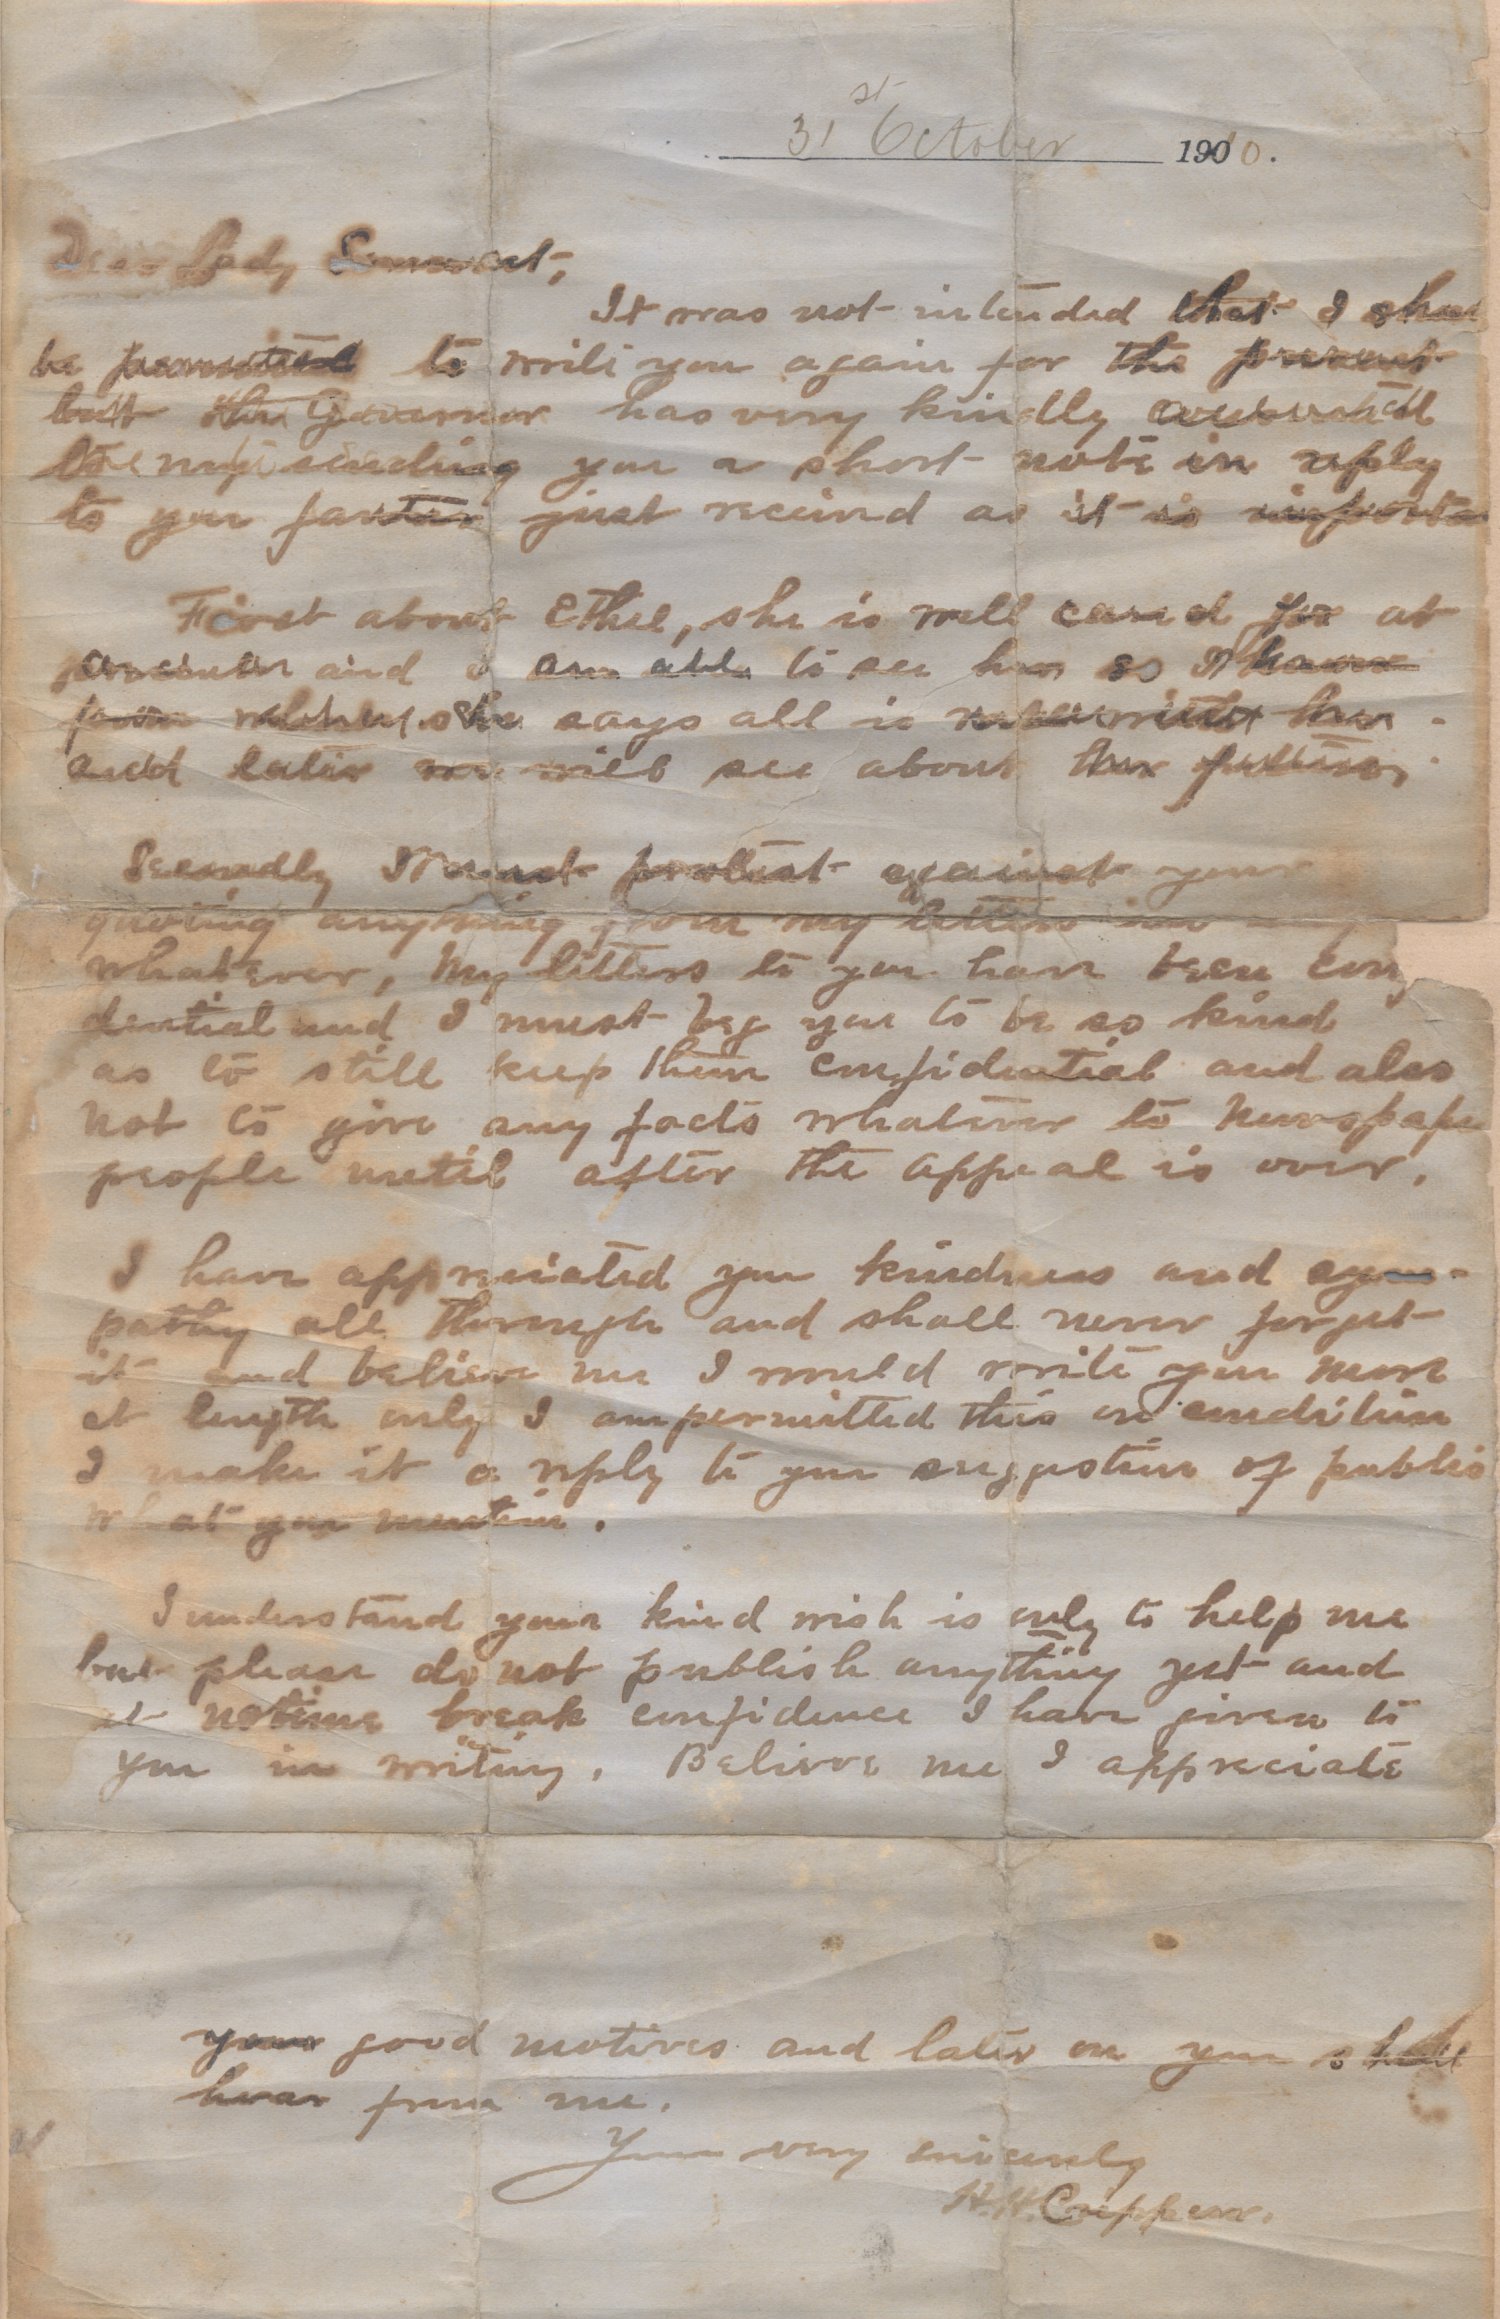 31st October 1900.
Dear Lady Somerset,
It was not intended that I shou
be permitted to write you again for the present
but the Governor has very kindly consented
to my sending you a short note in reply
to your just received as it is importa
First about Ethel, she is well cared for at
present and I am able to see her so I know
from what she says all is with her.
and later we will see about her future.
Secondly I must protest against your
quoting anything from my letters
whatever, My letters to you have been con
dential and I must beg you to be so kind
as to still keep them confidential and also
not to give any facts whatever to Newspape
people until after the appeal is over.
I have appreciated your kindness and sym-
pathy all through and shall never forget
it and believe me I would write you more
at length only I am permitted this on condition
I make it a reply to your suggestion of publis
what you mention.
I understand your kind wish is only to help me
but please do not publish anything yet and
at no time break confidence I have given to
you in writing. Believe me I appreciate
your good motives and later on you shall
hear from me.
Yours very sincerely
H. H. Crippen.